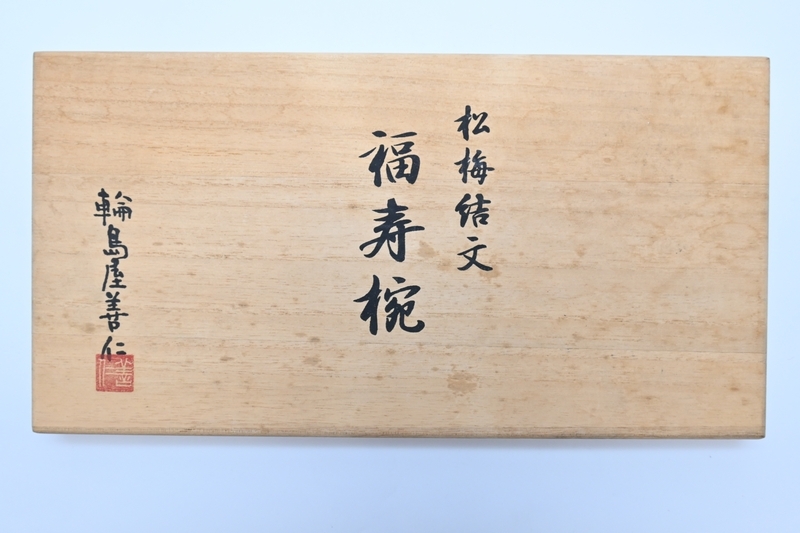 松梅結文
福寿椀
輪島屋善仁
善仁